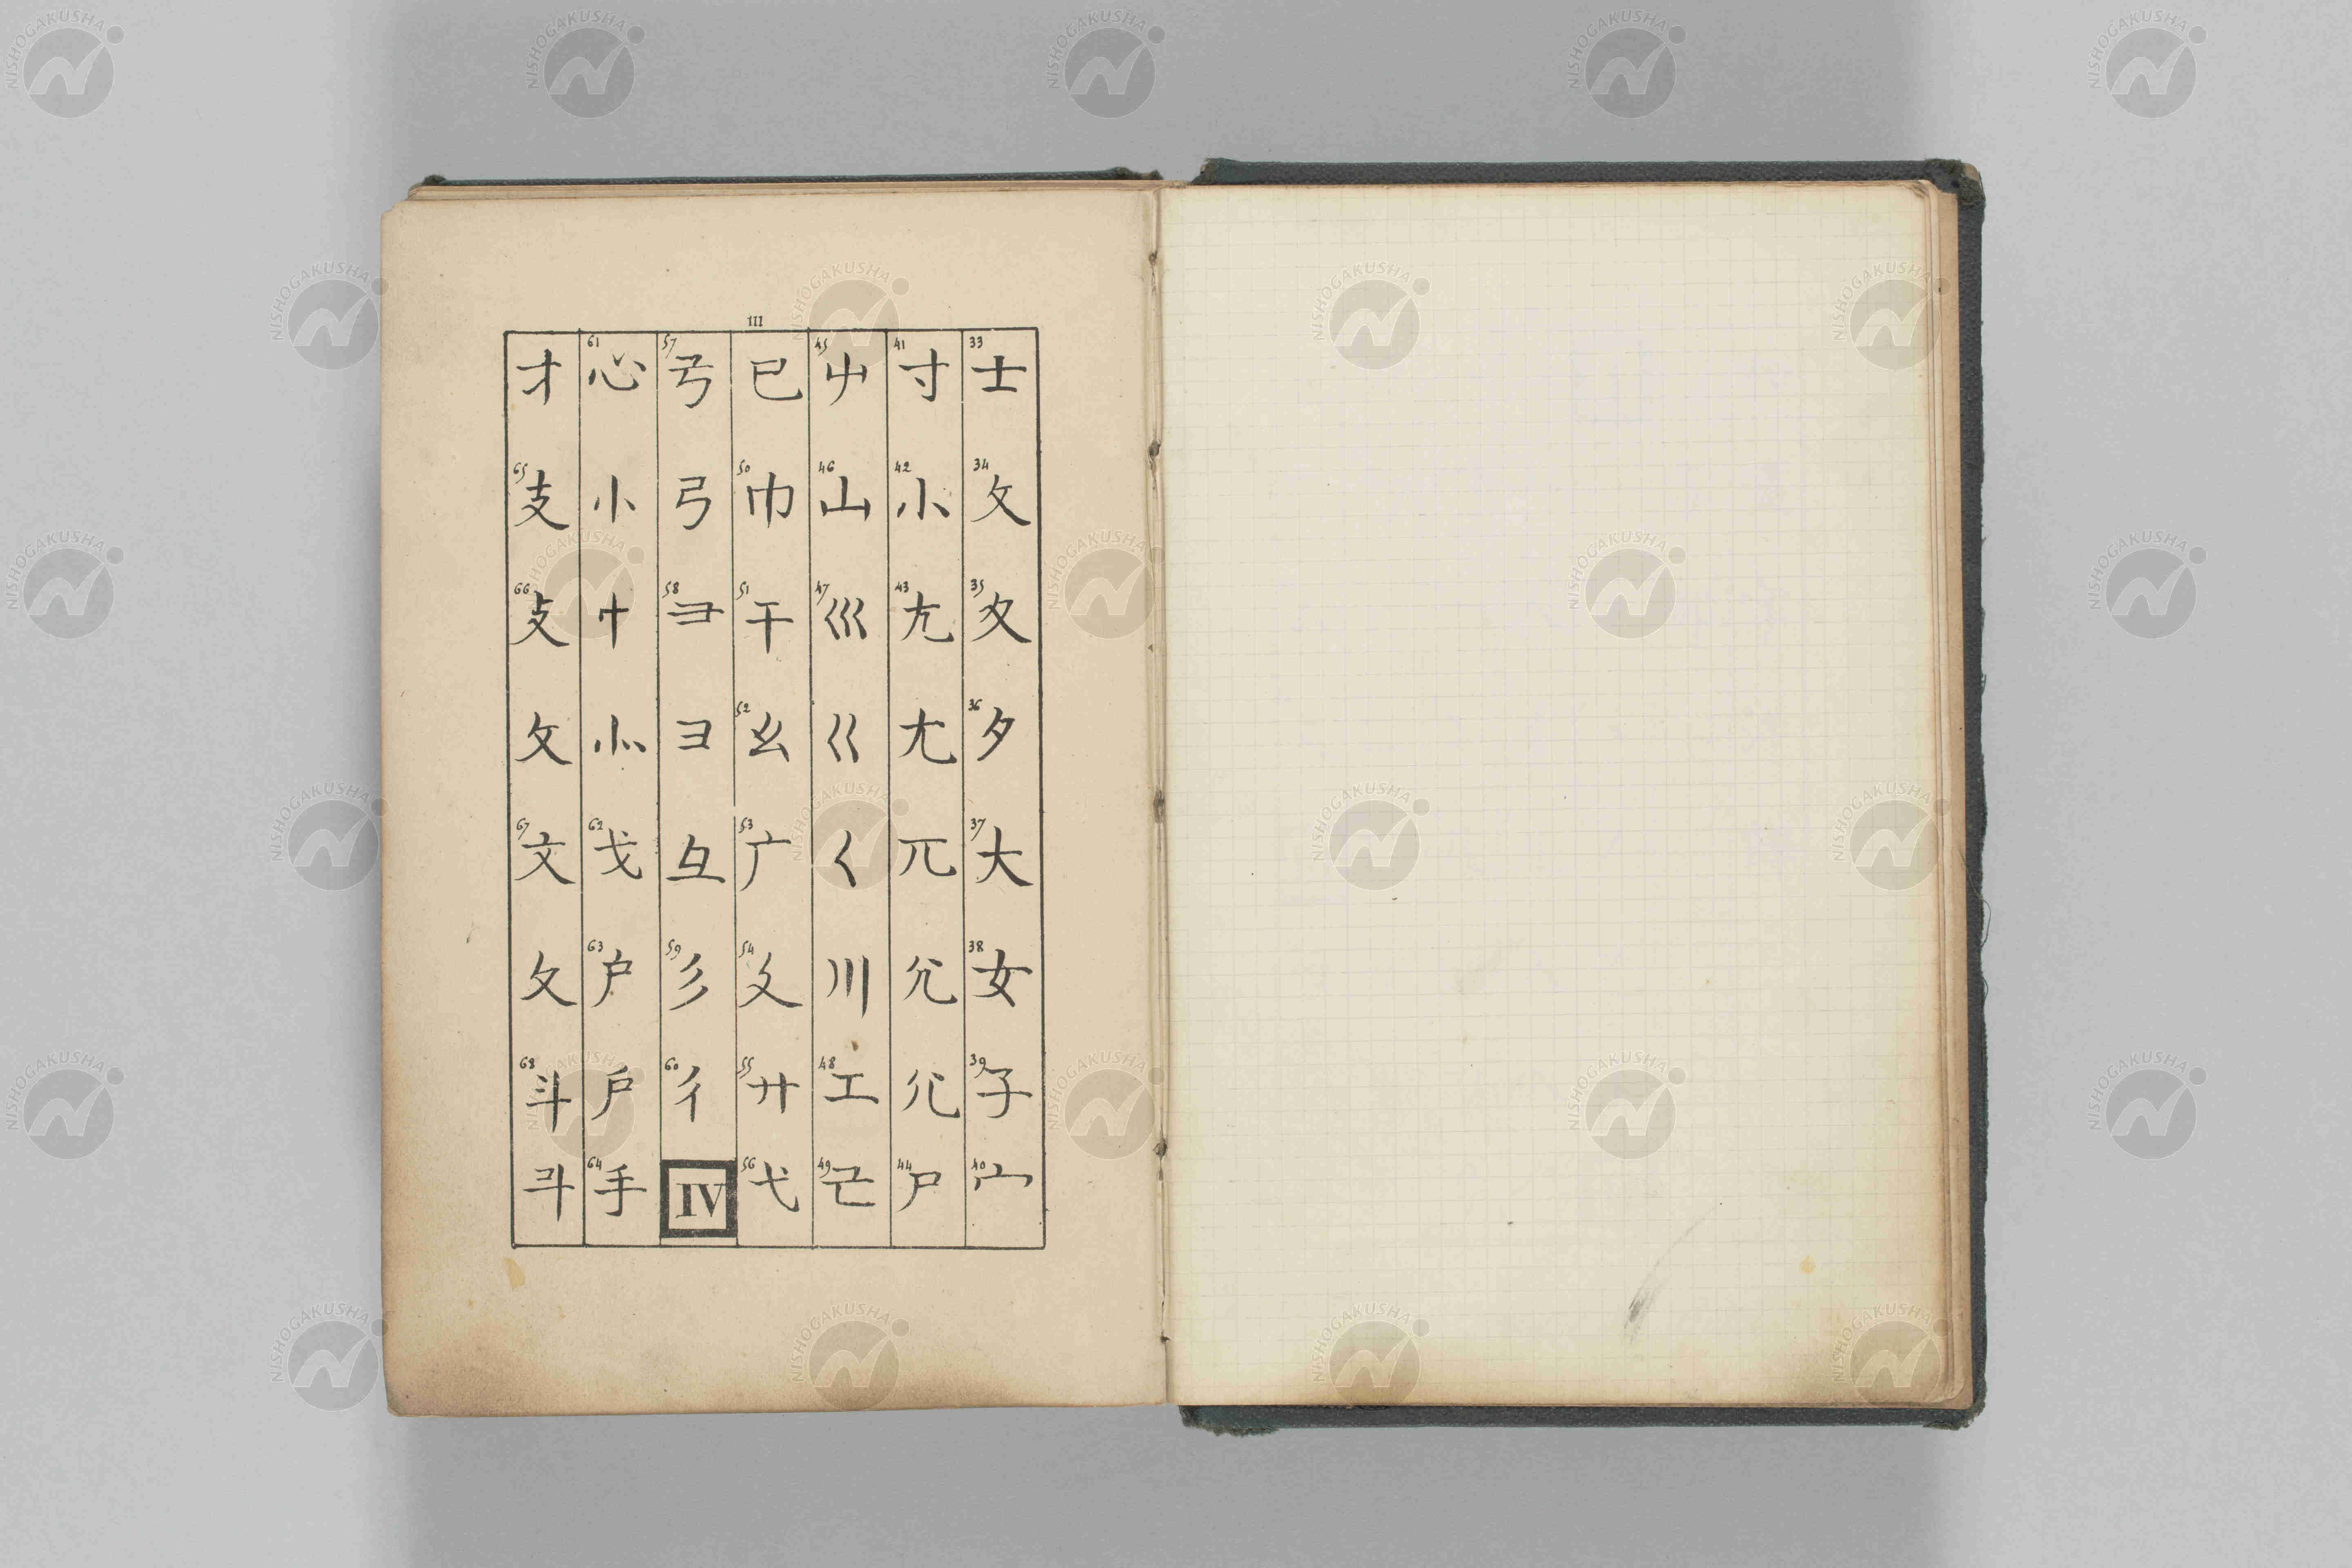 III
33 士 34 夂 35 夊 36 夕 37 大 38 女 39 子 40 宀
41 寸 42 小 43 尢 尤 兀 尣 尣 44 尸
45 屮 46 山 47 巛 巜 く 川 48 工 49 己
已 50 巾 51 干 52 幺 53 广 54 廴 55 廾 56 弋
57 弓 弓 58 彐 ヨ 彑 59 彡 60 彳 IV
61 心 小 忄 㣺 62 戈 63 户 戶 64 手
才 65 支 66 攴 攵 67 文 攵 68 斗 斗
NISHOGAKUSHA